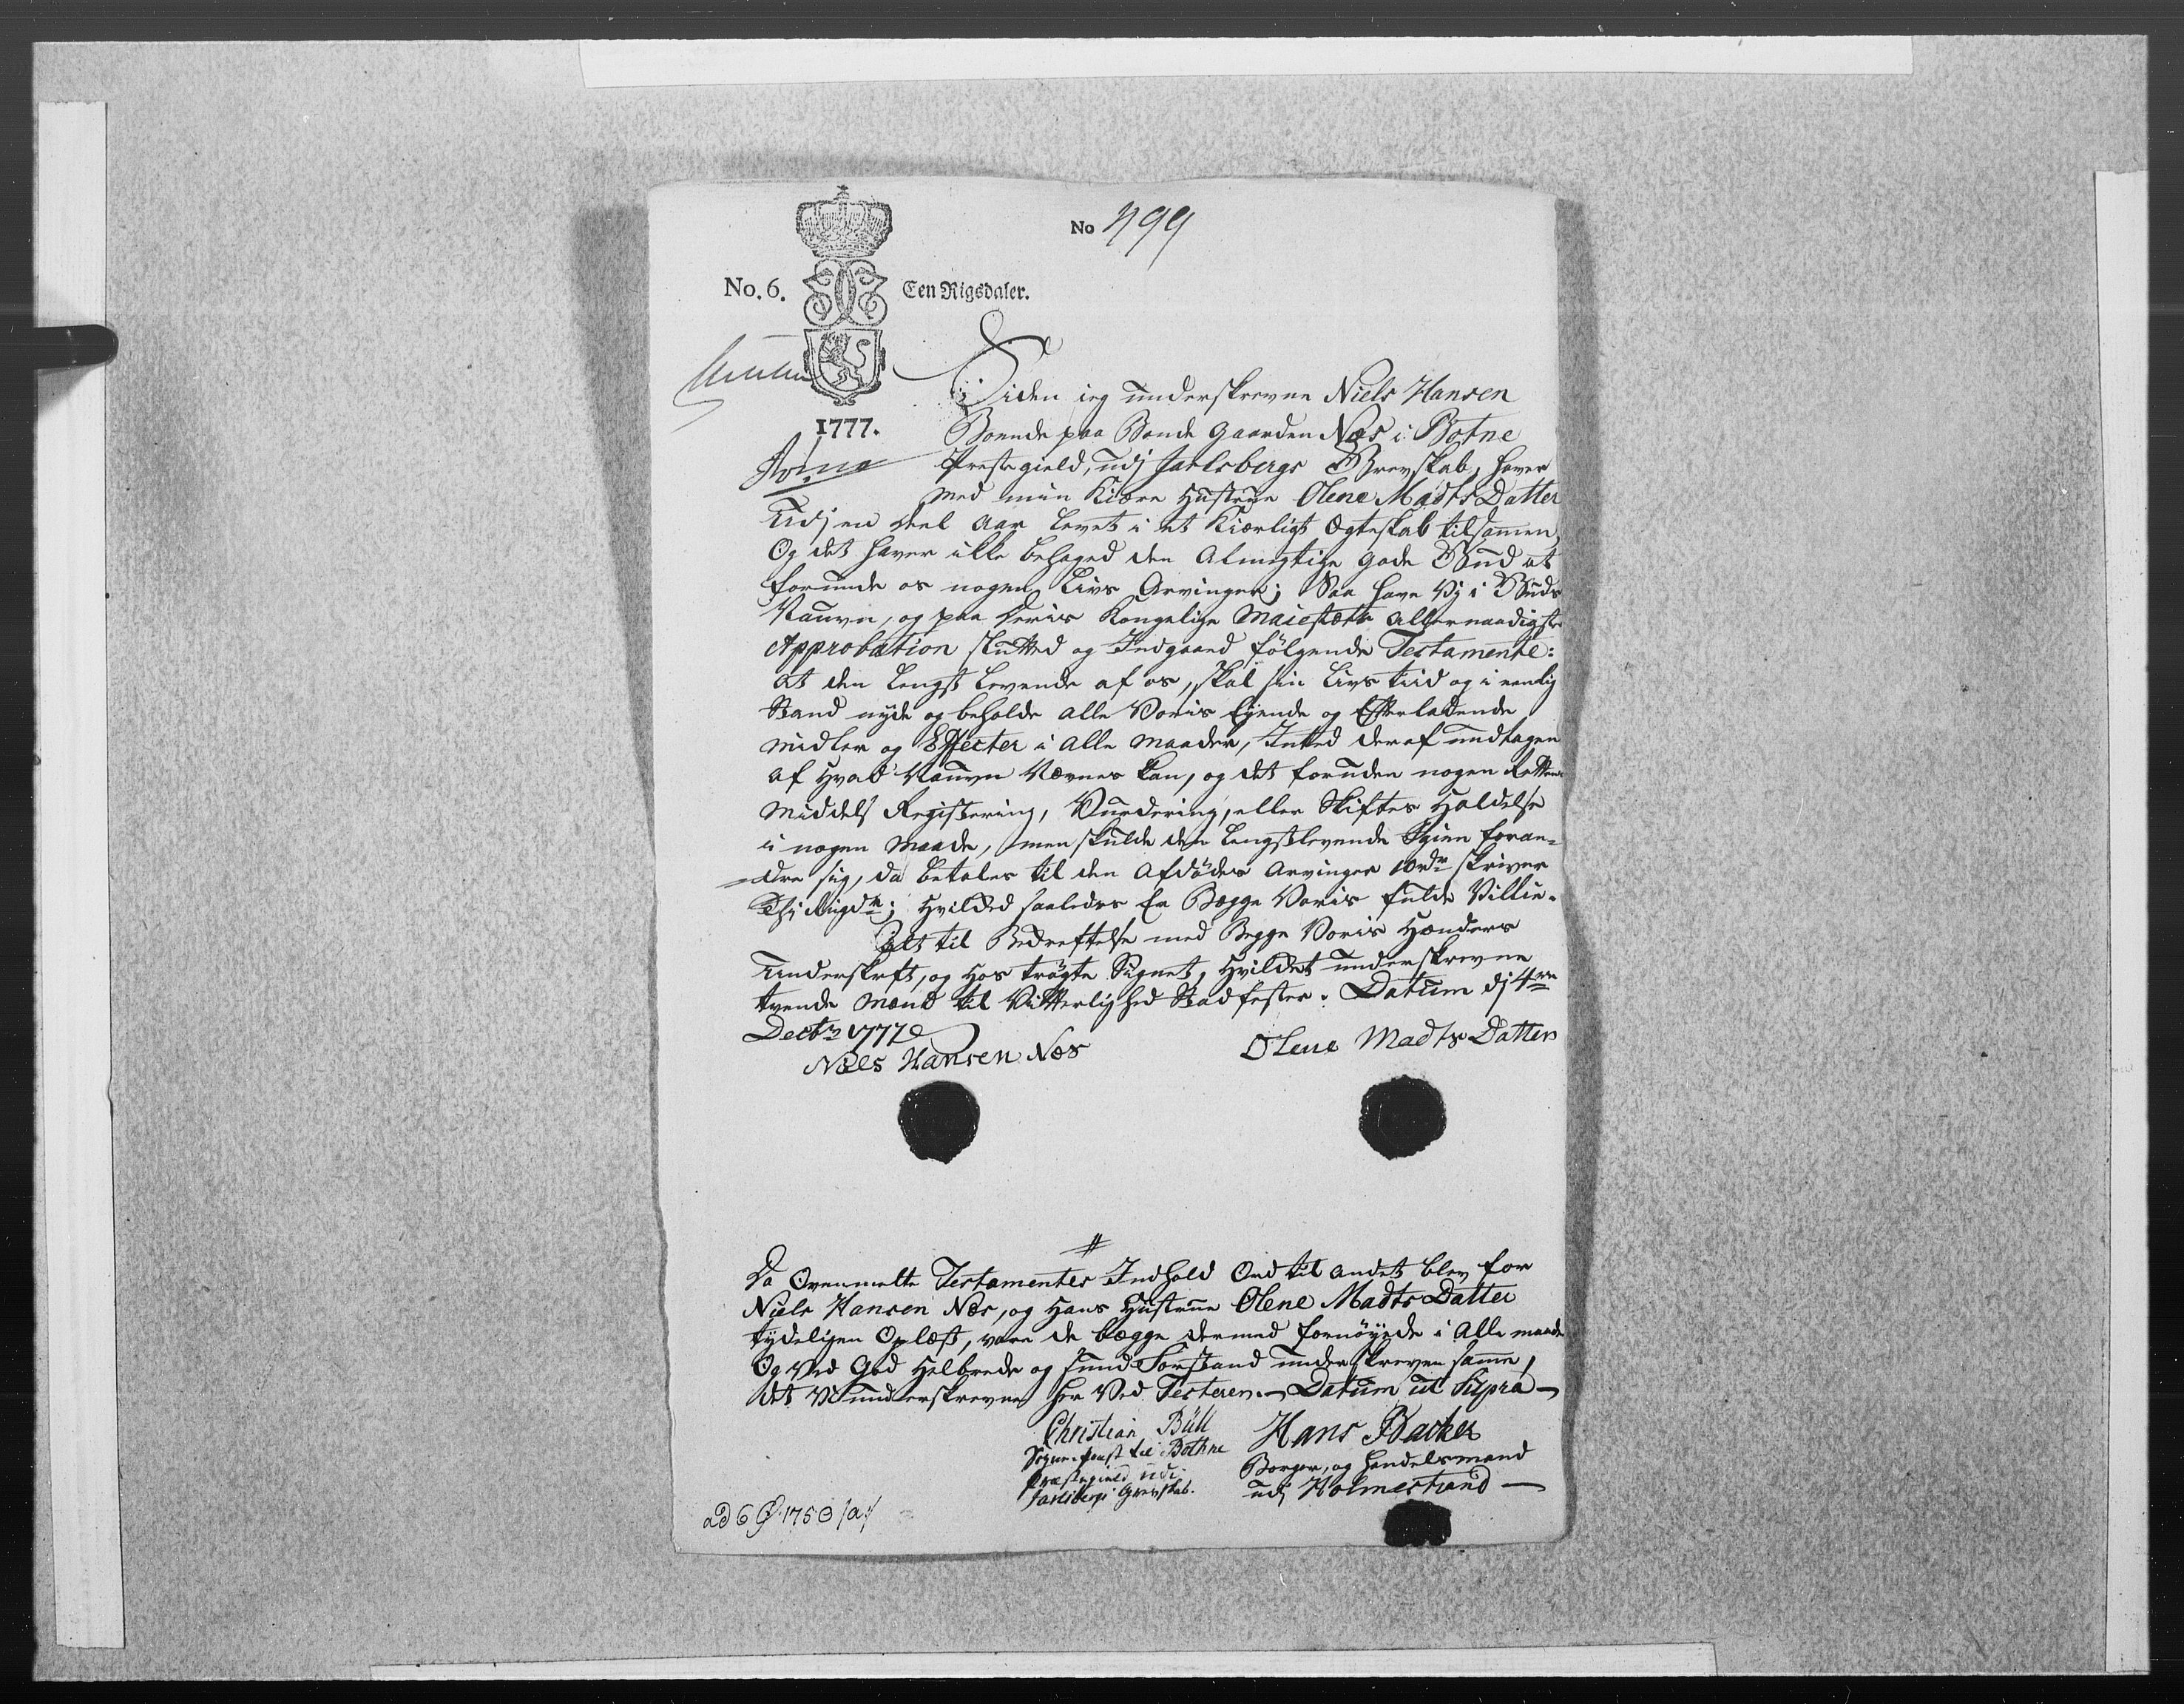 No 499
No. 6. Een Rigsdaler.
1777.
Siden ieg underskrevne Niels Hansen
Boende paa Bonde Gaarden Næs i Botne
Prestegield, udj Jarlsbergs Grevskab, haver
med min Kiære Hustrue Olene Madts Datter
Udj en deel Aar levet i et Kiærligt Ægteskab tilsammen,
Og det haver ikke behaged den Almegtige gode Gud at
forunde os nogen Livs Arvinger; Saa have Vj i Guds
Naufn, og paa Deris Kongelige Maiestæts allernaadigste
Approbation slutted og Indgaaed følgende Testamente:
at den Lengst Levende af os, skal sin Livs tiid og i eenlig
Stand nyde og beholde alle Voris Eyende og Efterladende
Midler og Effecter i alle maader, Inted deraf undtagen
af Hvad Naufn Nævnes kan, og det foruden nogen Rettens
Middels Registering, Vurdering, eller Skiftes Holdelse
i nogen Maade, men skulde den Lengstlevende Igien foran=
=dre sig, da betales til den Afdødes Arvinger 10 rdr skriver
Thj Rigdr; Hvilded saaledes Er Begge Voris fulde Villie.
Alt til Bedreftelse med Begge Voris Hænders
Underskrft, og Hos trøgte Signet, Hvildet underskrevne
tvende Mænd til Vitterlighed Stadfester. Datum dj 4de
Decbr 1777
Niels Hansen Næs Olene Madts Datter
Da Ovenmelte Testamentes Indhold Ord til andet blev for
Niels Hansen Næs, og Hans Hustrue Olene Madts Datter
tydeligen Oplæst, vare de begge dermed fornøyede i Alle maade
Og Ved God Helbrede og sund Forstand underskreven samme,
det Vi underskrevne her Ved Testeren. Datum ut Supra
Christian Büll Hans Backer
Sogne-Prest til Bothne Borger, og Handelsmand
Præstegield udi udj Holmestrand
Jarlsbergs Grevskab.
ad 6 1750 /a:/